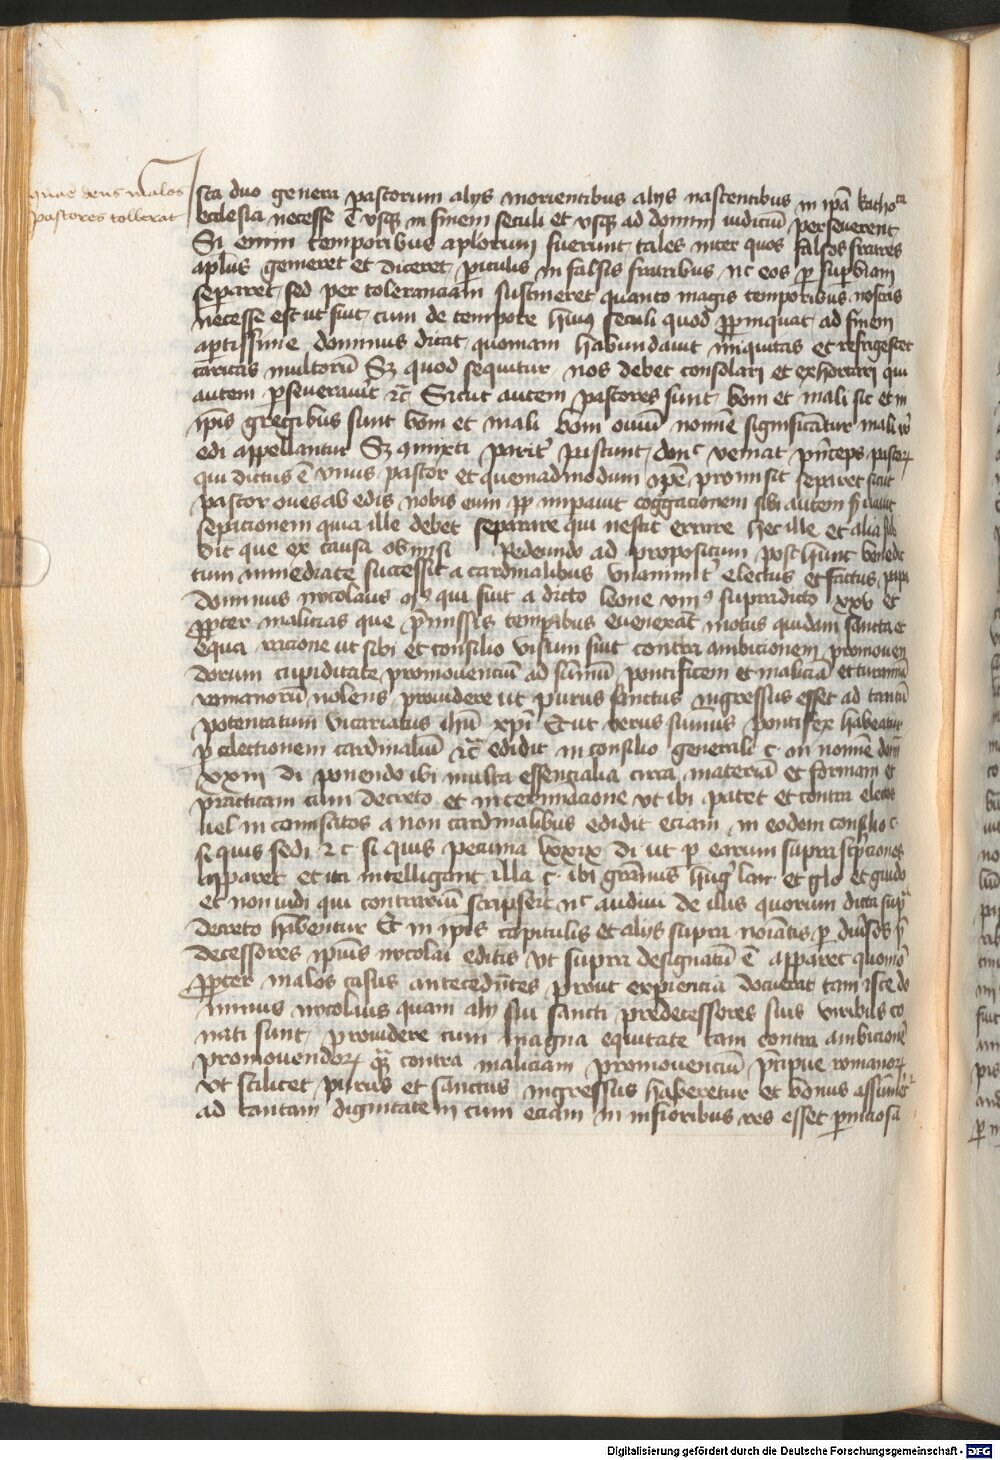 quare deus malos
pastores tollerat
Ista duo genera pastorum alijs morientibus alijs nascentibus in ip̄a katho^ca
ecclesia necesse ē vsq̄ in finem seculi et vsq̄ ad domini iudiciū perseuerent
Si enim temporibus apl'orum fuerunt tales inter quos falsos fratres
apl'us gemeret et diceret periculis in falsis fratribus nc̄ eos ꝑ suꝑbiam
seꝑaret sed per toleranciam sustineret quanto magis temporibus nostris
necesse est ut sint cum de tempore huiꝰ seculi quod ꝓpinquat ad finem
aꝑtissime dominus dicat quoniam habundauit iniquitas et refrigescet
caritas multorū Sꝫ quod sequitur nos debet consolari et exhortari qui
autem ꝑseuerauit ꝛc̄ Sicut autem pastores sunt boni et mali sic et in
ip̄is gregibus sunt boni et mali boni ouiū nomīe significātur mali v^o
edi appellantur Sꝫ ꝯmixti parit' pascunt donc̄ veniat prīceps pastorꝝ
qui dictus ē vnus pastor et quemadmodum ip̄e promisit seꝑaret sicut
pastor oues ab edis nobis enim ꝓp impauit congregacionem sibi autem seruauit
seꝑacionem quia ille debet separare qui nescit errare hec ille et alia sub
dit que ex causa obmisi Redeundo ad propositum post hunc benedic
tum immediate successit a cardinalibus vnanimit' electus et factus papa
dominus nycolaus qui fuit a dicto leone viiij^o supradicto xxv et
ꝓpter malicias que p̄missis temporibus euenerāt motus quidam sancta et
equa racione ut sibi et consilio visum fuit contra ambicionem promouen
dorum cupiditate promouenciū ad sūmū pontificem et maliciā et turannidē
romanorū nolens prouidere ut purus sanctus ingressus esset ad tantū
potentatum vicariatus ihū xpī Et ut verus sumus pontifex habeatur
ꝑ electionem cardinaliū ꝛc̄ edidit in consilio generali c. in nomīe dom̄i
xxiij di ponendo ibi multa essencialia circa materiā et formam et
practicam cum decreto et in terminacione vt ibi patet et contra electos
uel incornisatos a non cardinalibus edidit eciam in eodem consilio c.
si quis sedi ꝛ c. si quis pecunia lxxix di ut ꝑ earum suprascrīpciones
apparet et ita intelligunt illa c. ibi gracianus hug' lau' et glo et guido
et non vidi qui contrariū scripserit nc̄ audiui de illis quorum dicta sup^a
decreto habentur Et in ip̄is capitulis et alijs supra noiatis ꝑ diu'sos p̄
decessores ip̄ius nycolai editis vt supra designatū ē apparet quomō
ꝓpter malos casus antecedentes prout exꝑiencia docuerat tam iste do
minus nycolaus quam alij sui sancti predecessores suis viribus co
nati sunt prouidere cum magna equitate tam contra ambicionē
promouendorꝝ quā contra maliciam promouenciū p̄cipue romanorꝝ
vt scilicet purus et sanctus ingressus haberetur et bonus assūmet^r
ad tantam dignitatem cum eciam in inferioribus res esset ꝑniciosa
Digitalisierung gefördert durch die Deutsche Forschungsgemeinschaft - DFG